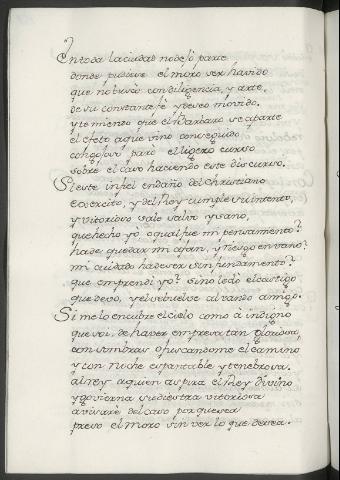 En toda la ciudad no dejó parte
donde pudiese el moro ser havido
que no buscó con diligencia, y arte,
de su constante fe y deseo movido.
y temiendo que el Barbaro se aparte
el efeto aqui vino conseguido
congojoso paró el ligero curso
sobre el caso haciendo este discurso.
Si este infiel en daño del christiano
exercito, y del Rey cumple su intento,
y vitorioso sale salvo y sano,
que hecho yo o qual fue mi pensamento?
ha de quedar mi afan, y riesgo en vano?
mi cuidado ha de ser sin fundamento?
que emprendi yo? sino le dó el castigo
que devo, y el se buelve al vando amigo.
Si me lo encubre el cielo como á indigno
que soi, de haver empresa tan gloriosa,
con sombras ofuscandome el camino
y con noche espantable y tenebrosa.
al rey a quien aspira el Rey divino
y govierna su diestra vitoriosa
avisaré del caso por que sea
preso el moro sin ver lo que desea.